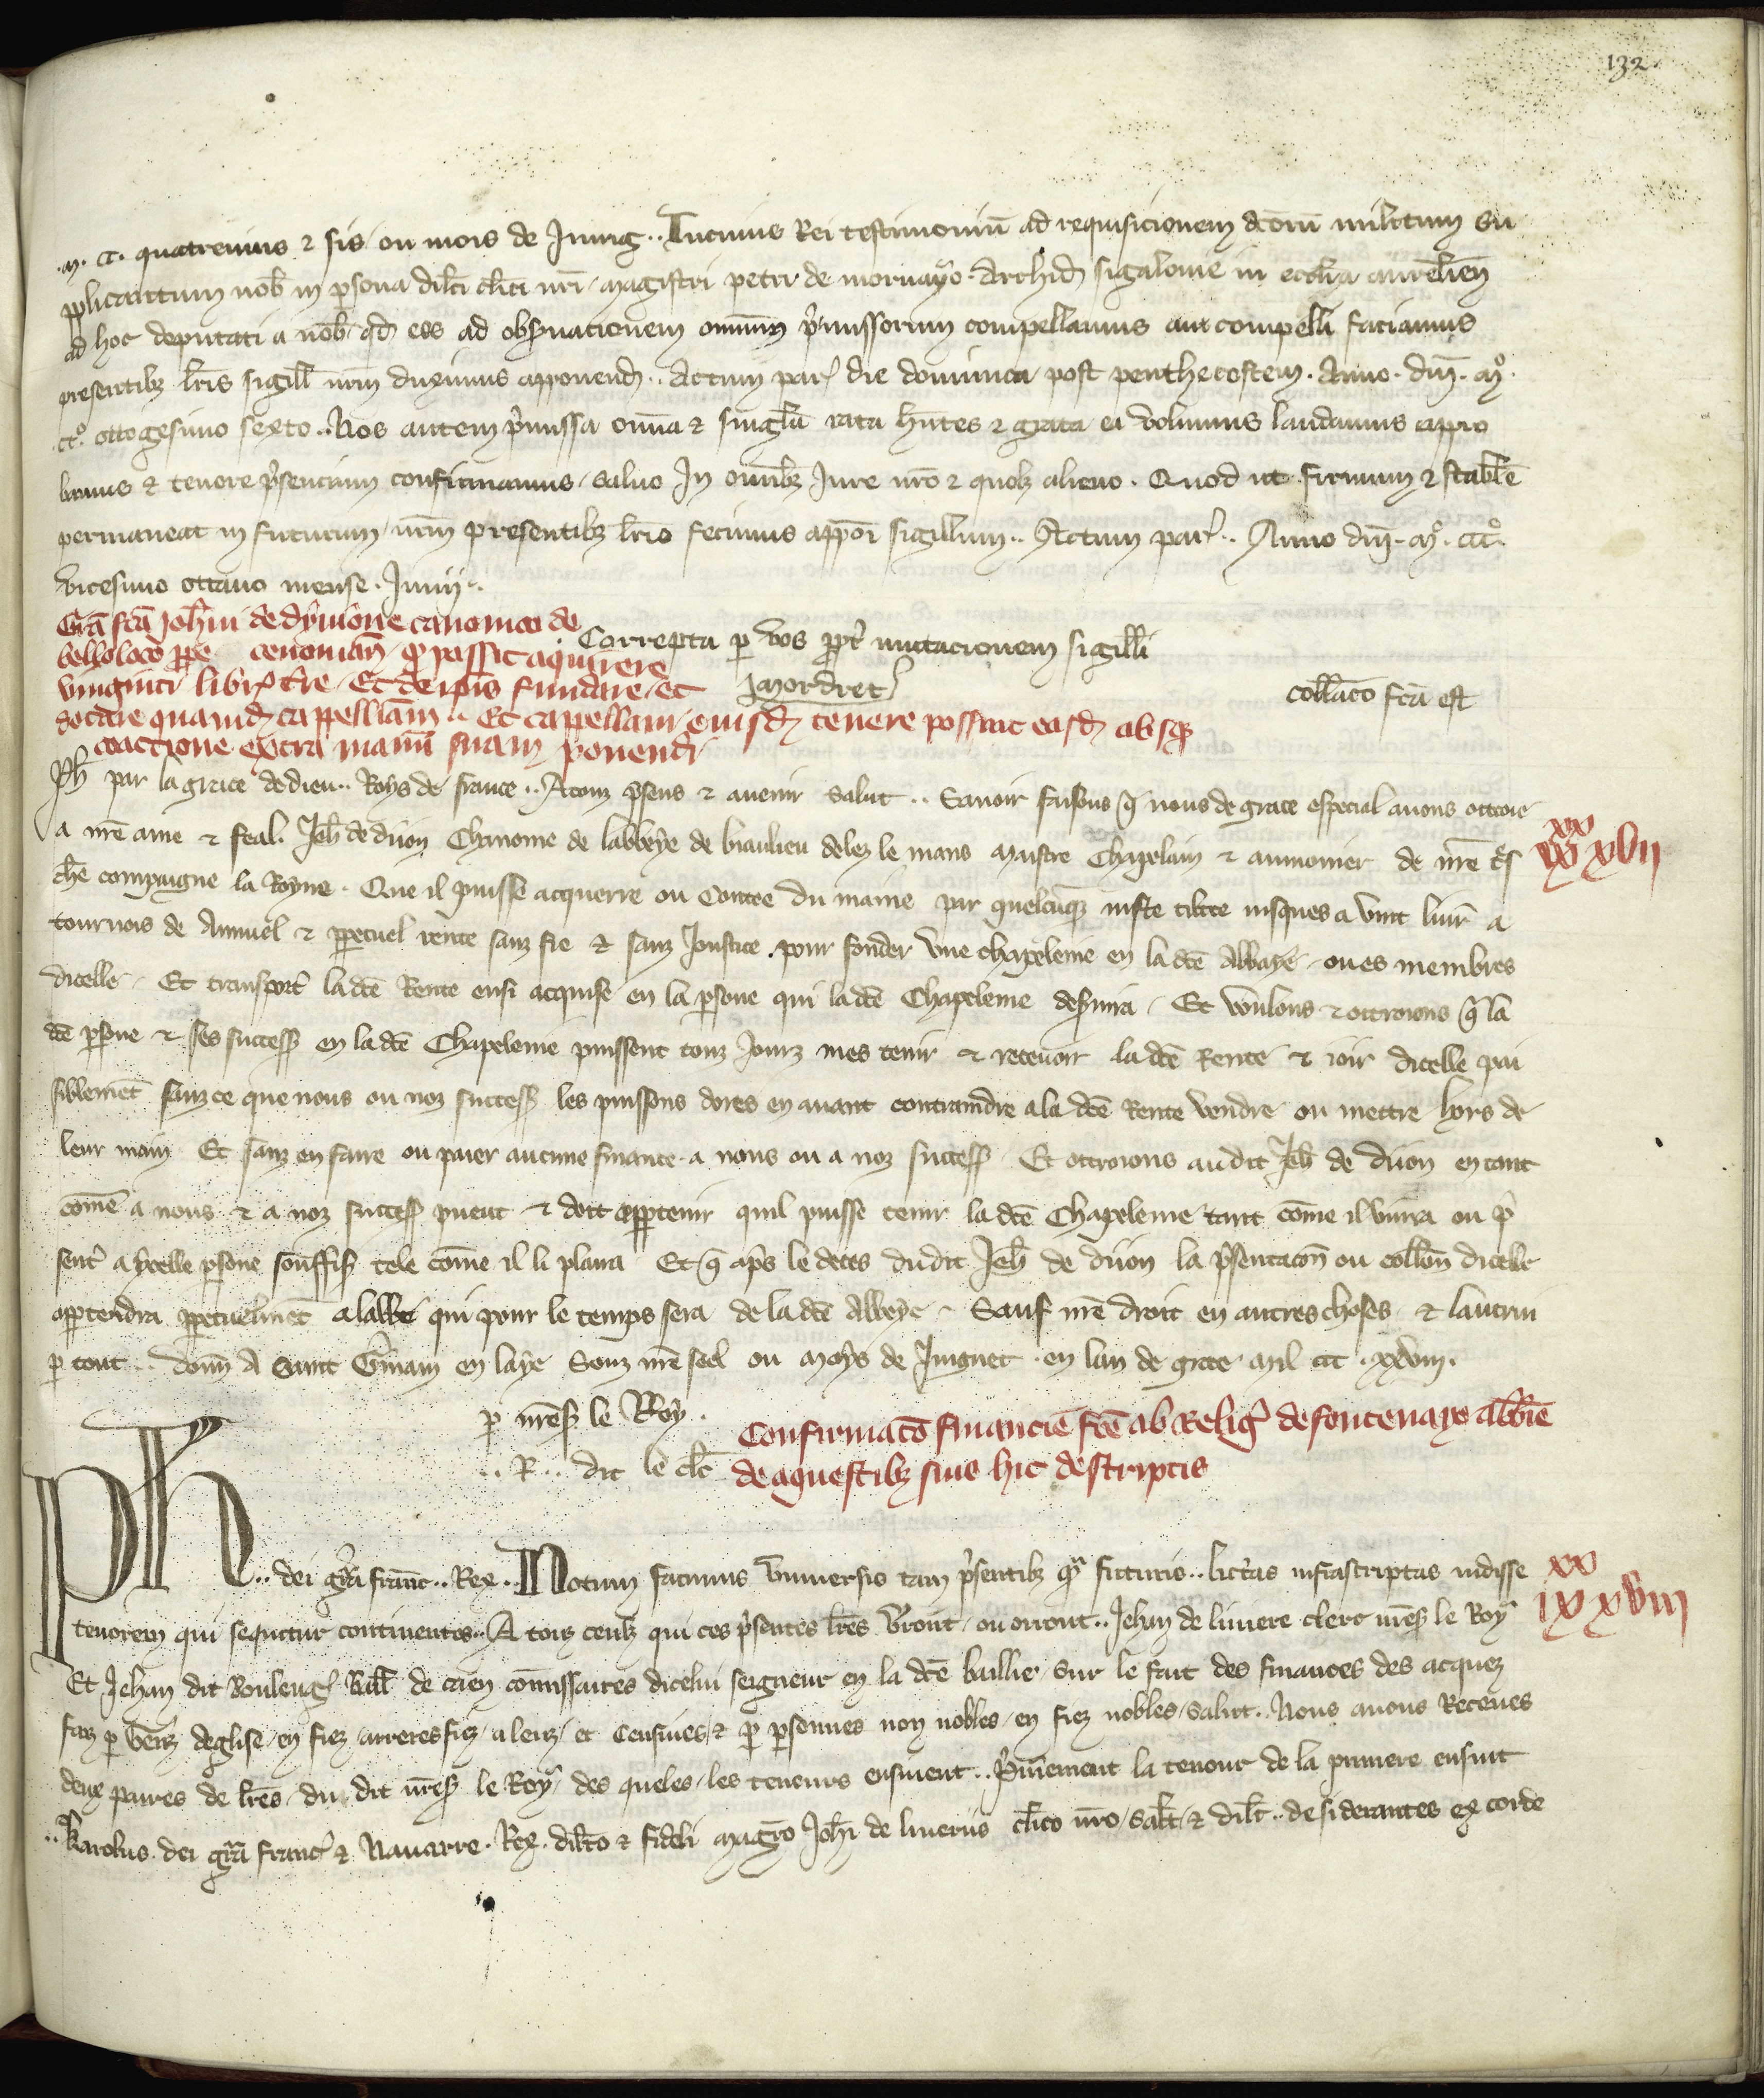 132.
.M. CC. quatrevins ⁊ sis ou mois de Juing.. In cuius Rei testimoniū ad requisicionem dcōrū militum su
pplicantium nob̄ in ꝑsona dilc̄ti cl̄ici nr̄i magistri petri de mornayo Archid̄ sigalonie in ecclīa aurelien̄
ad hoc deputati a nob̄ qd̄ eos ad obseruacionem omīum p̄missorum compellamus aut compelli faciamus
presentibꝫ lr̄is sigill̄ nr̄m duximus apponend̄.. Actum par̄ die dominica post penthecostem. Anno. dn̄i. Mº.
CCº. ottogesimo sexto.. Nos autem p̄missa om̄ia ⁊ singl̄a rata h̄ntes ⁊ grata ea volumus laudamus appro
bamus ⁊ tenore p̄sencium confirmamus, saluo In om̄ibꝫ Jure nr̄o ⁊ quolꝫ alieno. Quod ut firmum ⁊ stabile
permaneat in futurum, nr̄m presentibꝫ lr̄is fecimus appōi sigillum.. Actum par̄.. Anno dn̄i. Mº. CCCº.
vicesimo ottauo mense. Junij..
Grā fcā Joh̄ni de dyuione canonico de
belloloco ꝓpe cenoman̄ ꝙ possit aquirere
viginti libr̄ t̄re Et de ip̄is fundare et
dotare quamd̄ cappelliam.. Et cappellani eiusd̄ tenere possint easd̄ absqꝫ
coactione extra manū suam ponendi
Correpta ꝑ vos ꝓpt̄ mutacionem sigilli
Mordret
coll̄aco fcā est
Ph̄ par la grace de dieu.. Roys de france.. A touz p̄sens ⁊ auenir salut.. Sauoir faisons q̄ nous de grace especial auons ottroie
a nr̄e ame ⁊ feal. Jeh̄ de diion Chanoine de labbeye de biaulieu delez le mans maistre Chapelain ⁊ aumonier de nr̄e tres
xx
ix xvii
ch̄e compaigne la Royne. Que il puisse acquerre ou Contee du maine par quelcūqꝫ iuste titre iusques a vint liur̄ a
tournois de Annuel ⁊ ꝑpetuel rente sanz fie ⁊ sanz Joustice pour fonder vne chapelenie en la dcē Abbaye ou es membres
dicelle. Et transport̄ la dcē Rente ensi acquise en la ꝑsone qui la dcē Chapelenie deseruira. Et voulons ⁊ ottroions q̄ la
dcē ꝑsone ⁊ ses success̄ en la dcē Chapelenie puissent touz Jourz mes tenir ⁊ receuoir la dcē Rente ⁊ ioir dicelle pai
siblemēt sanz ce que nous ou noz success̄ les puissons dores en auant contraindre a la dcē Rente vendre ou mettre hors de
leur main Et sanz en faire ou paier aucune finance a nous ou a noz success̄. Et ottroions audit Jeh̄ de diion en tant
cōme a nous ⁊ a noz success̄ puent ⁊ doit appartenir quil puisse tenir la dcē Chapelenie tant cōme il viura ou p̄
sent̄ a ycelle ꝑsone souffis̄ tele cōme il li plaira Et q̄ ap̄s le deces dudit Jeh̄ de diion la p̄sentacōn ou coll̄on dicelle
apꝑtendra ꝑpetuelmēt a labbe qui pour le temps sera de la dcē Abbeye. Sauf nr̄e droit en autres choses ⁊ lautrui
ꝑ tout.. donn̄ A Saint Germain en laye Souz nr̄e seel ou Moys de Juignet en lan de grace Mil CCC. xxviii.
ꝑ mess̄ le Roy.
.. R .. dit le cl̄c
Confirmacō financie fcē ab Relig̃ de fontenayo abb̄ie
de aquestibꝫ suis hic descriptis
Ph.. dei grā franc̄.. Rex.. Notum facimus vniuersis tam p̄sentibꝫ qᵃ futuris.. litt̄as infrascriptas vidisse
xx
ix xviii
tenorem qui sequitur continentes.. A touz ceulz qui ces p̄sentes lr̄es verront ou orront.. Jehan de liuiere clerc mess̄ le Roy
Et Jehan dit Bouleng̃ Baill̄ de caen cōmissaires dicelui seigneur en la dcē baillie sur le fait des finances des acquez
faiz ꝑ genz deglise en fiez arreresfiez aleuz et Censiues ⁊ ꝑ ꝑsonnes non nobles en fiez nobles Salut.. Nous auons Receues
deux paires de lr̄es du dit mess̄ le Roy des queles les teneurs ensiuent.. P̄miement la teneur de la premiere ensuit
.. Karolus dei grā franc̄ ⁊ Nauarre. Rex. dilc̄o ⁊ fideli magr̄o Joh̄i de liueriis cl̄ico nr̄o salt̄ ⁊ dilc̄.. desiderantes ex corde